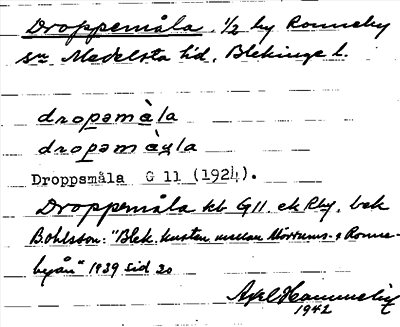 Droppemåla, 1/2 by Ronneby
sn Medelsta hd, Blekinge l.
dropəmàla
dropəm
Droppsmåla G 11 (1924).
Droppemåla kb G11. ek Rby. bek
B. Ohlsson: "Blek. kusten mellan Mörrums- o Ronne-
byån" 1939 sid 20
Axel Hammenby
1942